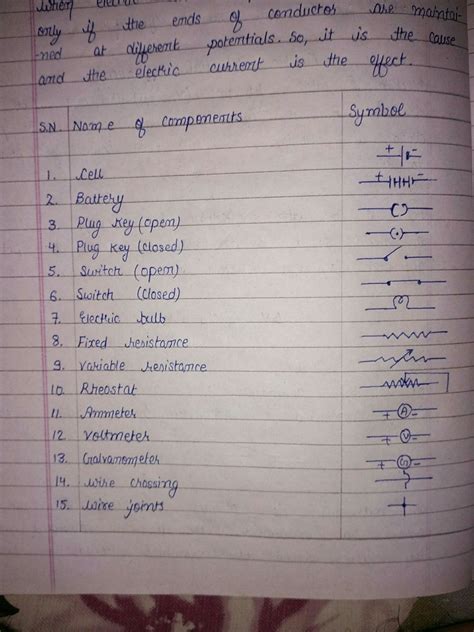 when elect
only if the ends of conductor are maintai-
-ned at different potentials. So, it is the cause
and the electric current is the effect.
S.N. Name of components Symbol
1. Cell + -
2. Battery + -
3. Plug Key (open) ( )
4. Plug Key (closed) (•)
5. Switch (open)
6. Switch (closed)
7. Electric bulb
8. Fixed resistance
9. Variable resistance
10. Rheostat
11. Ammeter + A -
12. Voltmeter + V -
13. Galvanometer + G -
14. Wire crossing
15. Wire joints